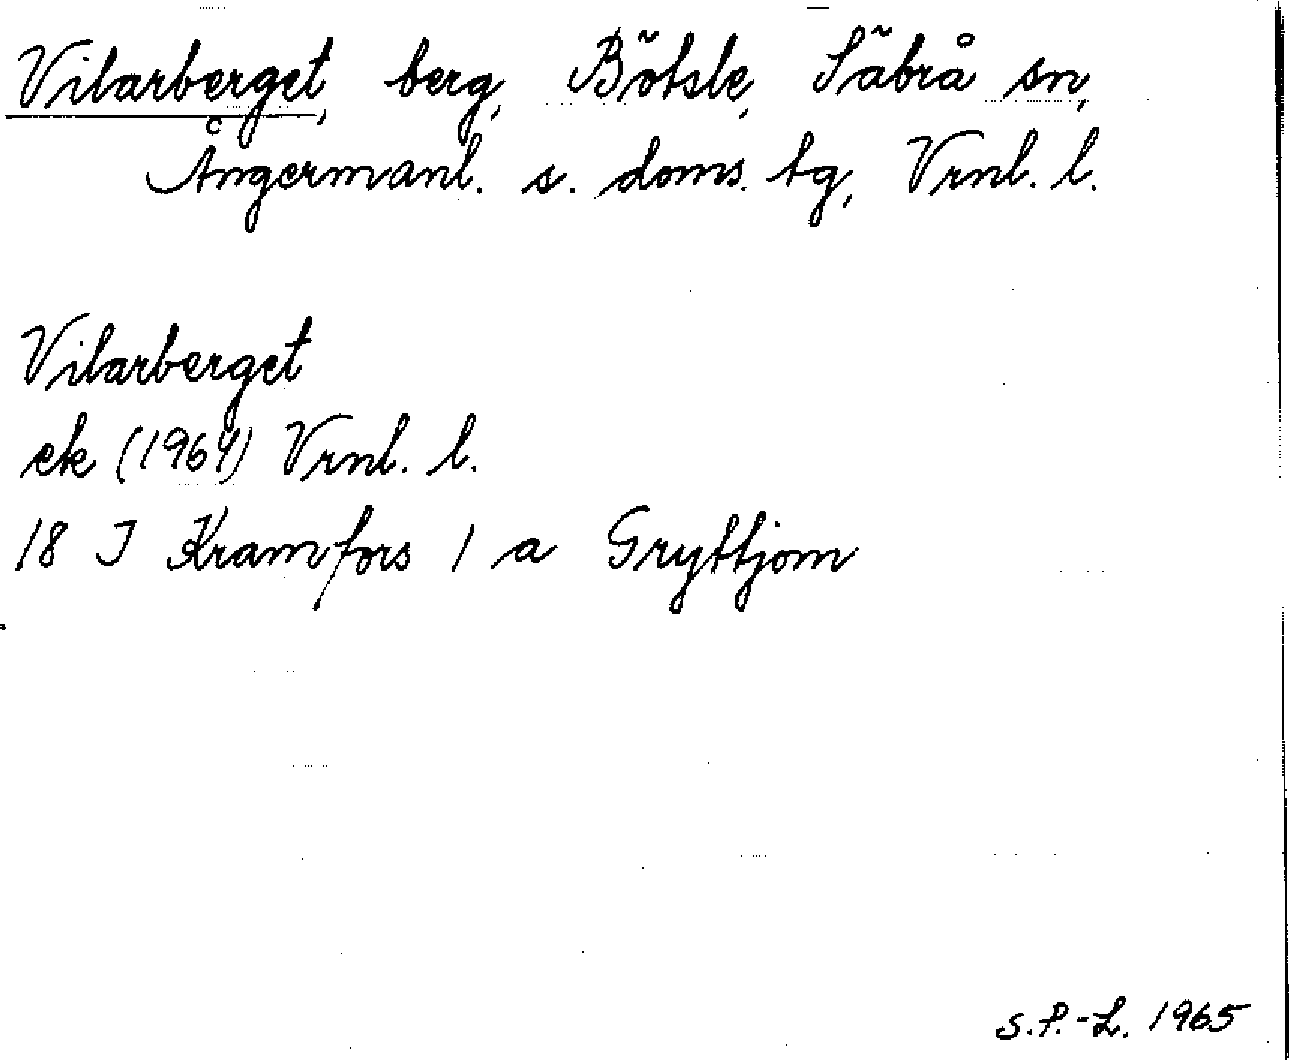 Vilarberget, berg, Bölsle, Säbrå sn,
Ångermanl. s. doms. tg, Vrnl. l.
Vilarberget
ek (1964) Vrnl. l.
18 I Kramfors 1 a Gryttjom
S.P.-L. 1965